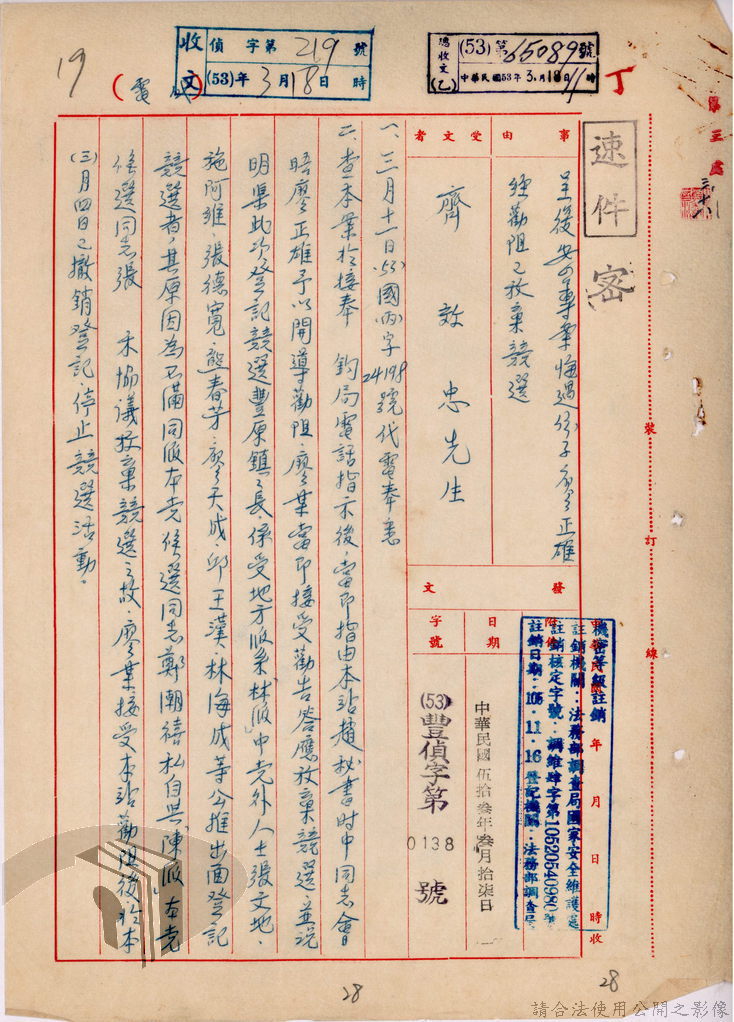 收文
偵字第219號
(53)年3月18日 時
總收文(乙)
(53)第65089號
中華民國53年3月18日11時
丁
19
第三處
速件
密
裝
訂
線
事由
經勸阻已放棄競選
受文者
齊效忠先生
發文
日期
中華民國伍拾叁年叁月拾柒日
字號
(53)豐偵字第0138號
年月日時收
機密等級註銷
註銷機關：法務部調查局國家安全維護處
註銷核定字號：調維肆字第10520540980號
註銷日期：105.11.16 登記機關：法務部調查局
一、三月十一日(53)國(丙)字24198號代電奉悉
二、查本案於接奉 鈞局電話指示後，當即指由本站趙秘書時中同志會
晤廖正雄予以開導勸阻，廖某當即接受勸告答應放棄競選，並說
明渠此次登記競選豐原鎮鎮長，係受地方派系「林派」中党外人士張文地、
施阿維、張德寬、熊春芳、廖天成、邱王漢、林海成等公推出面登記
競選者，其原因為不滿同派本党候選同志鄭潮禧私自與「陳派」本党
候選同志張 禾協議放棄競選之故，廖某接受本站勸阻後於本
(三)月四日已撤銷登記，停止競選活動。
28
28
請合法使用公開之影像